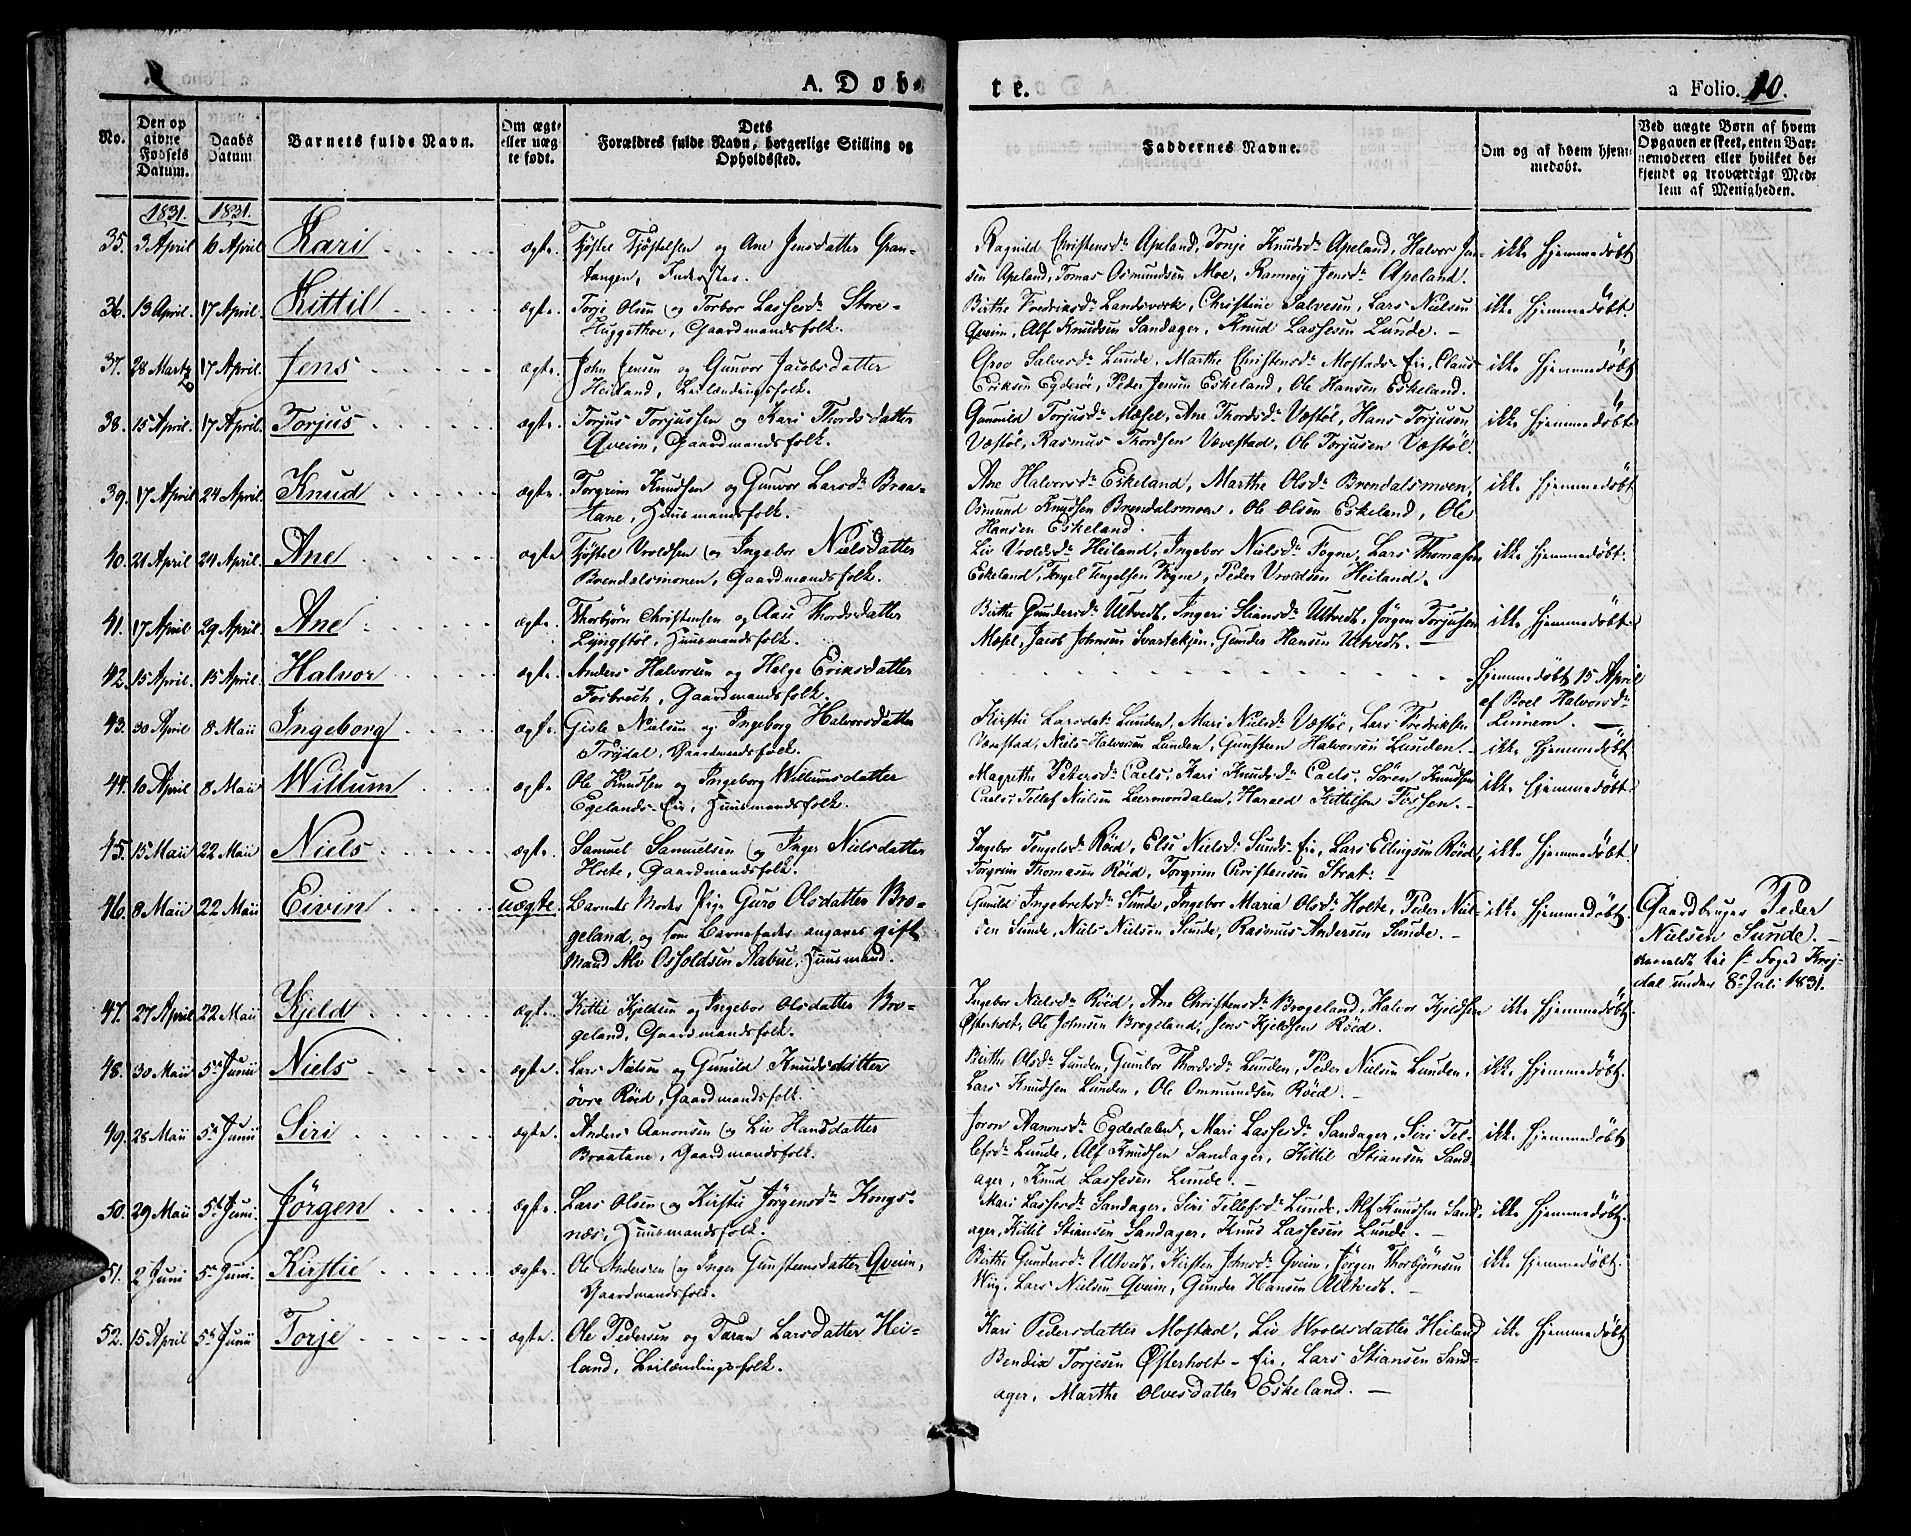 A. Døbte.
a Folio. 10.
No.
Den opgivne Fødsels Datum.
Daabs Datum
Barnets fulde Navn.
Om ægte eller uægte født.
Dets Forældres fulde Navn, borgerlige Stilling og Opholdssted.
Faddernes Navne.
Om og af hvem hjemmedøbt.
Ved uægte Børn af hvem Opgaven er skeet, enten Barnemoderen eller hvilket bekjendt og troværdigt Medlem af Menigheden.
1831. 1831.
35. 3 April 6 April Kari ægte. Tjøstel Tjøstelsen og Ane Jensdatter Gran-
tangen, Inderster.
Ragnild Christensdr Apeland, Tonje Knudsdr Apeland, Halvor Jen-
sen Apeland, Tomas Osmundsen Moe, Rannei Jensdr Apeland.
ikke hjemmedøbt
36. 13 April. 17 April. Kittil ægte. Torje Olsen og Torbor Lassesdr Store-
Huggethoe, Gaardmandsfolk.
Birthe Fredriksdr Landsværk, Christine Salvesen, Lars Nielsen
Qveim, Alf Knudsen Sandager, Knud Lassesen Lunde. –
ikke hjemmedøbt.
37. 28 Marts 17 April. Jens ægte. John Jensen og Gunvor Jacobsdatter
Heiland, Leilændingsfolk.
Groe Salvesdr Lunde, Marthe Christensdr Mostads Eir, Claus
Eriksen Egderøe, Peder Jensen Eskeland, Ole Hansen Eskeland.
ikke hjemmedøbt
38. 15 April. 17 April. Torjus ægte. Torjus Torjussen og Kari Thordsdatter
Qveim, Gaardmandsfolk.
Gunuld Torjusdr Mæsel, Ane Thordsdr Væstøl, Hans Torjusen
Væstøl, Rasmus Thordsen Vævestad, Ole Torjusen Væstøl.
ikke hjemmedøbt
39. 17 April 24 April. Knud ægte. Torgrim Knudsen og Gunvor Larsdr Braa-
tane, Huusmandsfolk.
Ane Halvorsdr Eskeland, Marthe Olsdr Brendalsmoen,
Osmund Knudsen Brendalsmoen, Ole Olsen Eskeland, Ole
Hansen Eskeland.
ikke hjemmedøbt
40. 21 April 24 April. Ane ægte Tjøstel Vroldsen og Ingebor Nielsdatter
Brendalsmonen, Gaardmandsfolk.
Liv Vroldsdr Heiland, Ingebor Nielsdr Fogne, Lars Thomasen
Eskeland, Tengel Tengelsen Fogne, Peder Vroldsen Heiland.
ikke hjemmedøbt.
41. 17 April 29 April. Ane ægte. Thorbjørn Christensen og Aase Thordsdatter
Lyngstøl, Huusmandsfolk.
Birthe Gundersdr Ultvedt, Ingeri Stiansdr Ultvedt, Jørgen Torjusen
Mæsel, Jacob Johnsen Svartekjen, Gunder Hansen Ultvedt. –
ikke hjemmedøbt.
42. 15 April. 15 April. Halvor ægte. Anders Halvorsen og Helge Eriksdatter
Fosbrech, Gaardmandsfolk.
Hjemmedøbt 15 April
af Boel Halvorsdr
Linnem. –
43. 30 April 8 Maii Ingeborg ægte. Gisle Nielsen og Ingeborg Halvorsdatter
Torjdal, Gaardmandsfolk.
Kirstie Larsdatr Lunden, Mari Nielsdr Væstøl, Lars Fredriksen
Vævestad, Niels Halvorsen Lunden, Gunsteen Halvorsen Lunden. –
ikke hjemmedøbt
44. 10 April 8 Maii Willum ægte. Ole Knudsen og Ingeborg Willumsdatter
Egelands-Eir, Huusmandsfolk.
Magrethe Petersdr Caels, Kari Knudsdr Caels, Søren Knudsen
Caels, Tellef Nielsen Leermondalen, Harald Kittilsen Fossen. –
ikke hjemmedøbt.
45. 15 Maii 22 Maii Niels ægte. Samuel Samuelsen og Inger Nielsdatter
Holte, Gaardmandsfolk.
Ingebor Tengelsdr Røid, Else Nielsdr Sunds-Eir, Lars Ellingsen Røid,
Torgrim Thomasen Røed, Torgrim Christensen Strat. –
ikke hjemmedøbt.
46. 8 Maii 22 Maii Eivin uægte. Barnets Moder Pige Guro Olsdatter Bro-
geland, og som Barnefader angaves gift
Mand Alv Osholdsen Aabue, Huusmand.
Gunild Ingebretsdr Sunde, Ingebor Maria Olsdr Holte, Peder Niel-
sen Sunde, Niels Nielsen Sunde, Rasmus Andersen Sunde. –
ikke hjemmedøbt.
Gaardbruger Peder
Nielsen Sunde. –
anmeldt til Foged Krej-
dal under 8de Juli 1831.
47. 27 April 22 Maii Kjeld ægte. Kittil Kjeldsen og Ingebor Olsdatter Bro-
geland, Gaardmandsfolk.
Ingebor Nielsdr Røed, Ane Christensdr Brogeland, Halvor Kjeldsen
Østerholt, Ole Johnsen Brogeland, Jens Kjeldsen Røed.
ikke hjemmedøbt.
48. 30 Maii 5te Junii Niels ægte. Lars Nielsen og Gunild Knudsdatter
øvre Røed, Gaardmandsfolk.
Birthe Olsdr Lunden, Gunbor Thordsdr Lunden, Peder Nielsen Lunden,
Lars Knudsen Lunden, Ole Ommundsen Røed. –
ikke hjemmedøbt.
49. 28 Maii 5te Junii Siri ægte. Anders Aanonsen og Liv Hansdatter
Braatane, Gaardmandsfolk.
Joron Aanonsdr Egdedalen, Mari Lassesdr Sandager, Siri Tel-
lefsdr Lunde, Alf Knudsen Sandager, Kittil Stiansen Sand-
ager, Knud Lassesen Lunde. –
ikke hjemmedøbt
50. 29 Maii 5te Juni. Jørgen ægte. Lars Olsen og Kirstie Jørgensdr Kongs-
næs, Huusmandsfolk.
Mari Lassesdr Sandager, Siri Tellefsdr Lunde, Alf Knudsen Sand-
ager, Kittil Stiansen Sandager, Knud Lassesen Lunde. –
ikke hjemmedøbt.
51. 2 Juni 5te Juni. Kirstie ægte. Ole Andersen og Inger Gunsteensdatter Qveim,
Gaardmandsfolk.
Birthe Gundersdr Ultvedt, Kirsten Johnsdr Qveim, Jørgen Thorbjørnsen
Wiig, Lars Nielsen Qveim, Gunder Hansen Ultvedt. –
ikke hjemmedøbt.
52. 15 April 5te Junii Torje ægte. Ole Pedersen og Taran Larsdatter Hei-
land, Leilændingsfolk.
Kari Pedersdatter Mostad, Liv Wroldsdatter Heiland
Bendix Torjesen Østerholt-Eir, Lars Stiansen Sand-
ager, Marthe Olvesdatter Eskeland. –
ikke hjemmedøbt